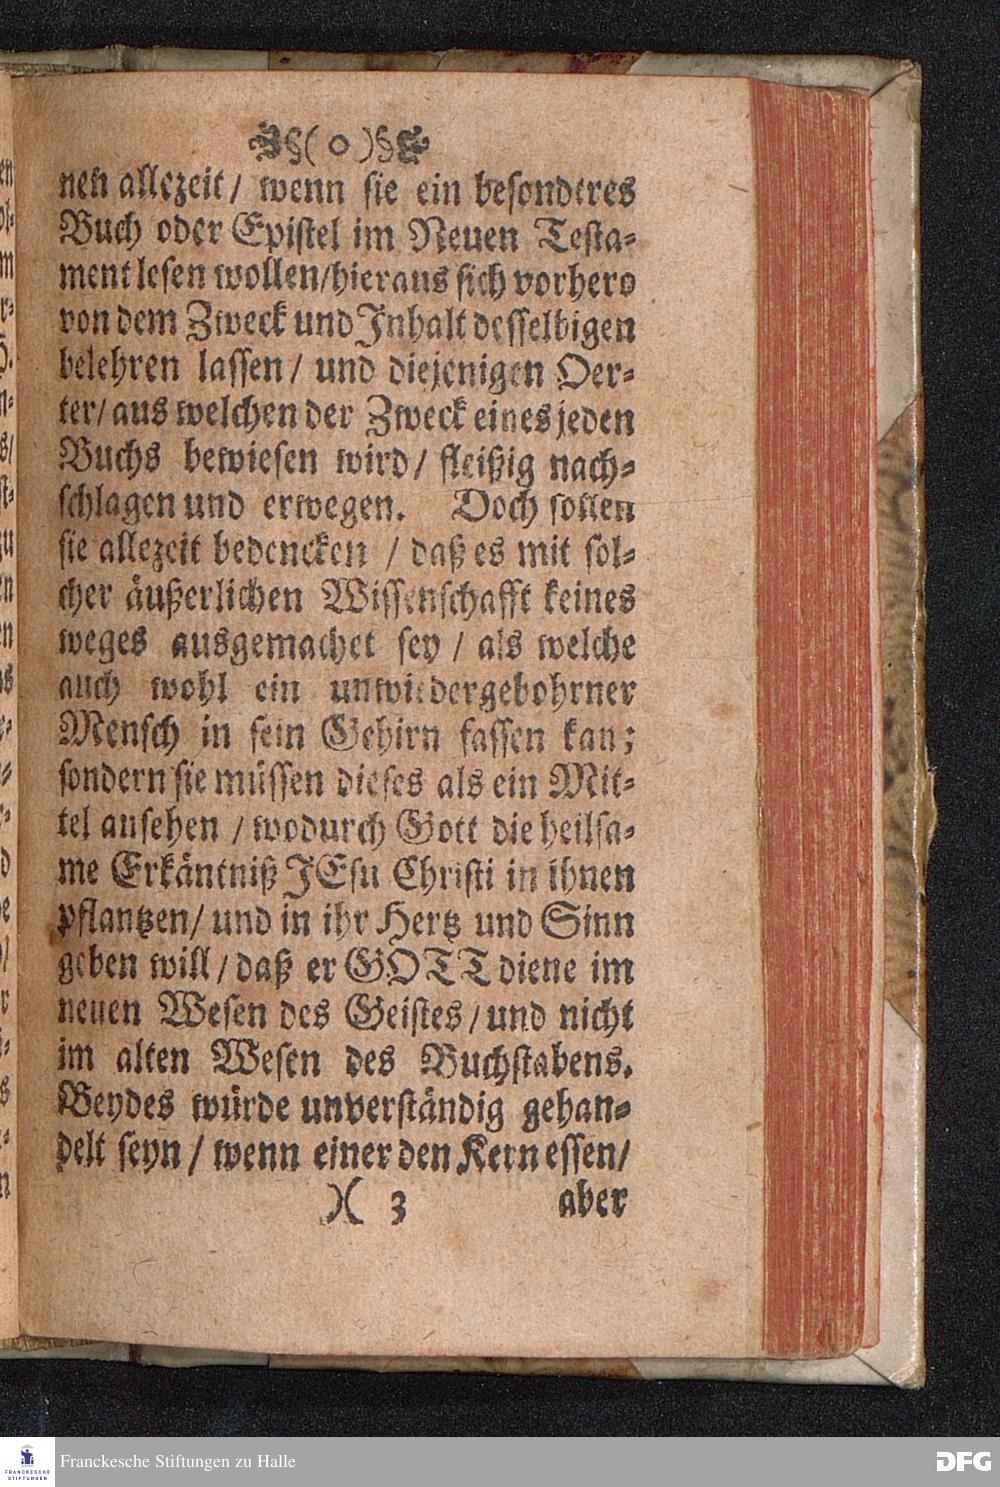 §( o )§
nen allezeit / wenn sie ein besonderes
Buch oder Epistel im Neuen Testa-
ment lesen wollen/hieraus sich vorhero
von dem Zweck und Inhalt desselbigen
belehren lassen / und diejenigen Oer-
ter/ aus welchen der Zweck eines jeden
Buchs bewiesen wird / fleißig nach-
schlagen und erwegen. Doch sollen
sie allezeit bedencken / daß es mit sol-
cher äußerlichen Wissenschafft keines
weges ausgemachet sey / als welche
auch wohl ein unwiedergebohrner
Mensch in sein Gehirn fassen kan;
sondern sie müssen dieses als ein Mit-
tel ansehen / wodurch Gott die heilsa-
me Erkäntniß JEsu Christi in ihnen
pflantzen/ und in ihr Hertz und Sinn
geben will / daß er GOTT diene im
neuen Wesen des Geistes / und nicht
im alten Wesen des Buchstabens.
Beydes würde unverständig gehan-
delt seyn / wenn einer den Kern essen/
)( 3 aber
Franckesche Stiftungen zu Halle
FRANCKESCHE
STIFTUNGEN
DFG